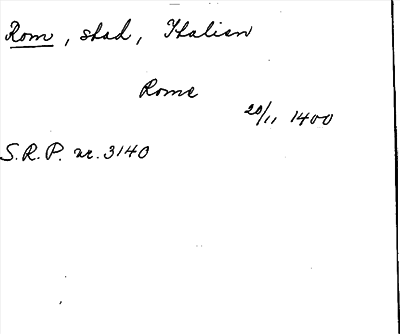 Rom, stad, Italien
Rome
20/11 1400
S.R.P. nr. 3140